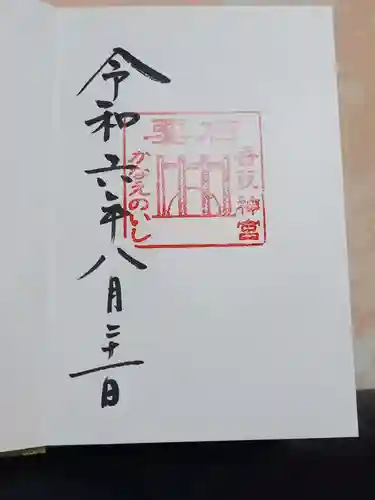 香取神宮
要石
かなめのいし
令和六年八月二十一日